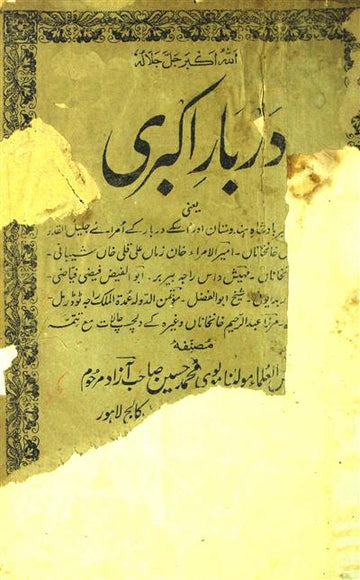 اللہ اکبر جل جلالہ
دربارِ اکبری
یعنی
بادشاہ ہندوستان اور اسکے دربار کے اُمرائے جلیل القدر
خانخاناں۔ امیرالامراء خان زماں علی قلی خاں شیبانی۔
مہیش داس راجہ بیربر۔ ابوالفیض فیضی فیاضی۔
شیخ ابوالفضل۔ مؤتمن الدولہ عمدۃ الملک راجہ ٹوڈرمل۔
مرزا عبدالرحیم خانخاناں وغیرہ کے دلچسپ حالات مع تتمہ
مصنفہ
العلماء مولٰنا مولوی محمد حسین صاحب آزاد مرحوم
کالج لاہور